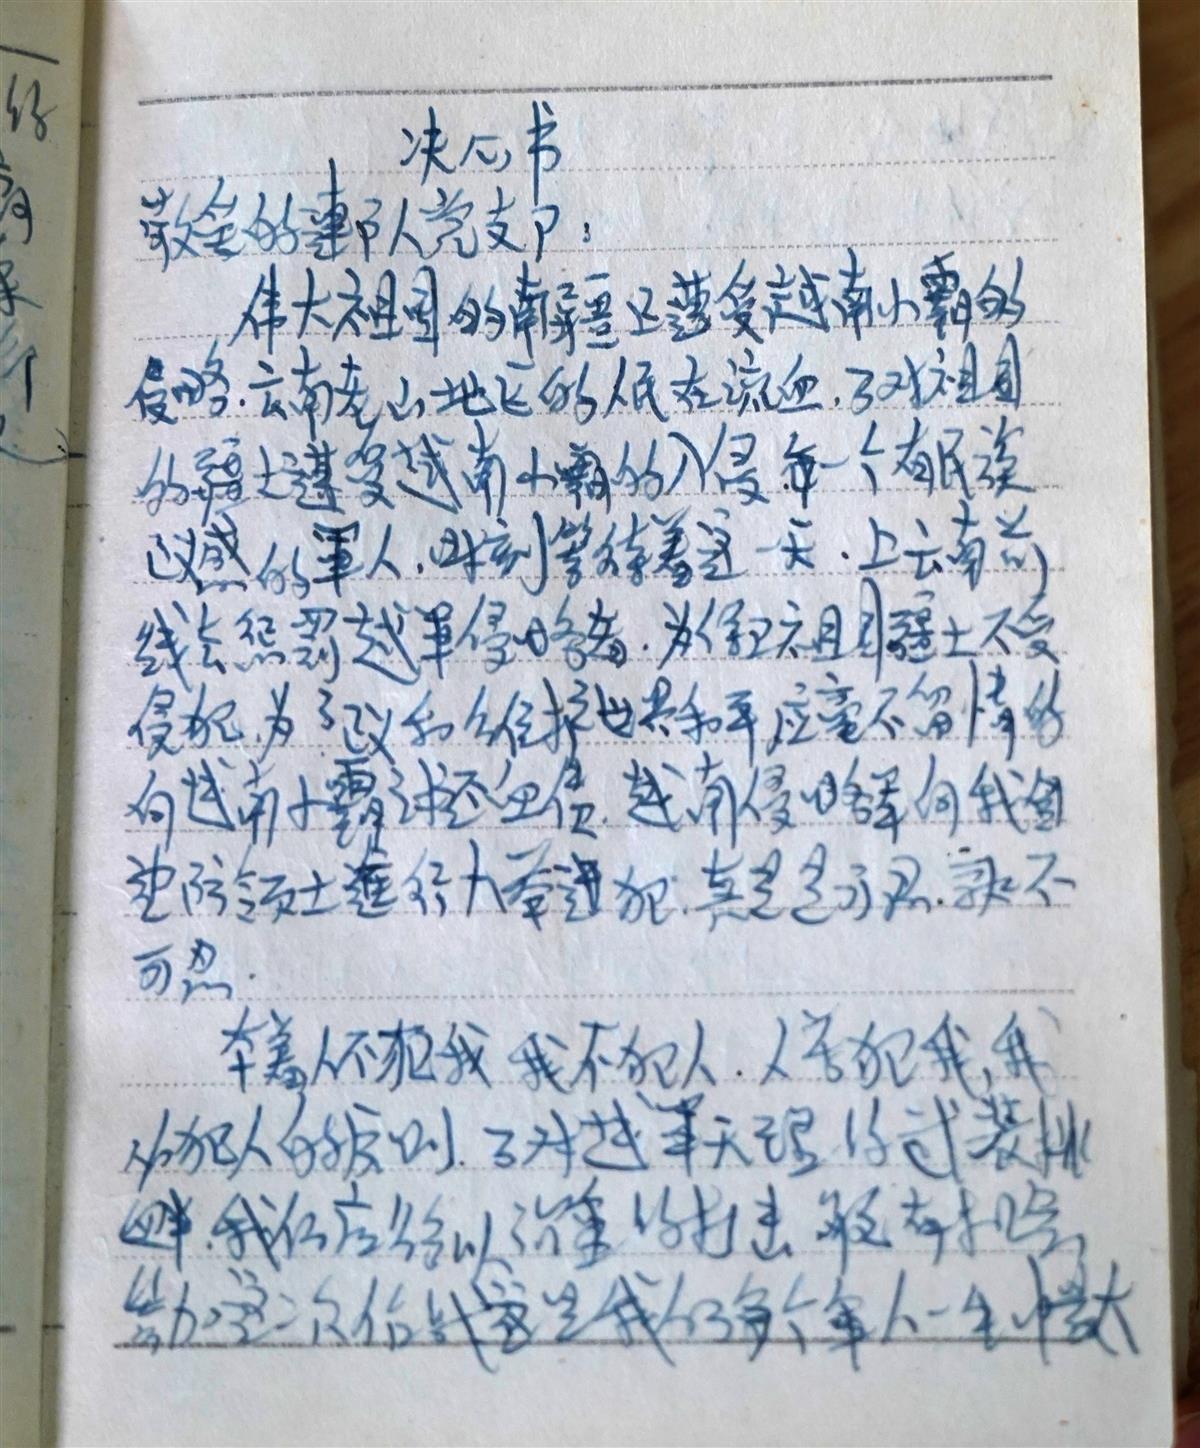 决心书
敬爱的连部队党支部：
伟大祖国的南疆正遭受越南小霸的
侵略.云南老山地区的人民在流血.对祖国
的疆土遭受越南小霸的入侵.每一个有民族
感的军人.时刻等待着这一天.上云南前
线去惩罚越军侵略者.为保卫祖国疆土不受
侵犯.为了和维护世界和平应毫不留情的
向越南小霸讨还血债.越南侵略军向我国
边防领土进行大举进犯.真是是可忍.孰不
可忍.
本着人不犯我 我不犯人.人若犯我,我
必犯人的原则.对越军无理的武装挑
衅.我们应给以沉重的打击
参加这次作战这是我们每个军人一生中最大